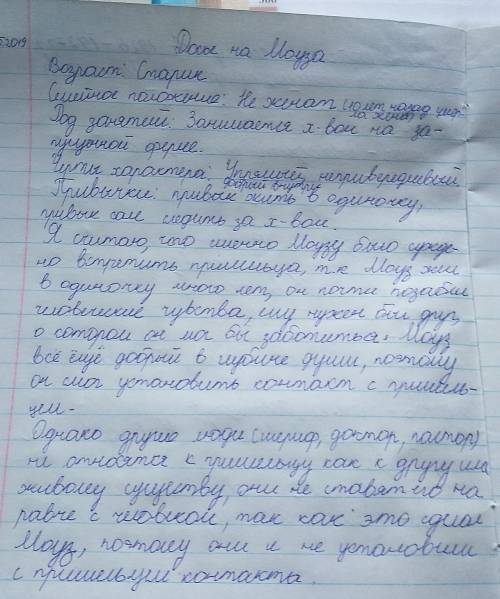 5.2019
Досье на Моуза
Возраст: Старик
Семейное положение: Не женат (10 лет назад умер-
ла жена)
Род занятий: Занимается х-вом на за-
пущенной ферме.
Черты характера: Упрямый, непривередливый
добрый внутри
Привычки: привык жить в одиночку,
привык сам следить за х-вом.
Я считаю, что именно Моузу было сужде-
но встретить пришельца, т.к Моуз жил
в одиночку много лет, он почти позабыл
человеческие чувства, ему нужен был друг,
о котором он мог бы заботиться. Моуз
всё ещё добрый в глубине души, поэтому
он смог установить контакт с пришель-
цем.
Однако другие люди (шериф, доктор, пастор)
не относятся к пришельцу как к другу или
живому существу, они не ставят его на
равне с человеком, так как это сделал
Моуз, поэтому они и не установили
с пришельцем контакты.